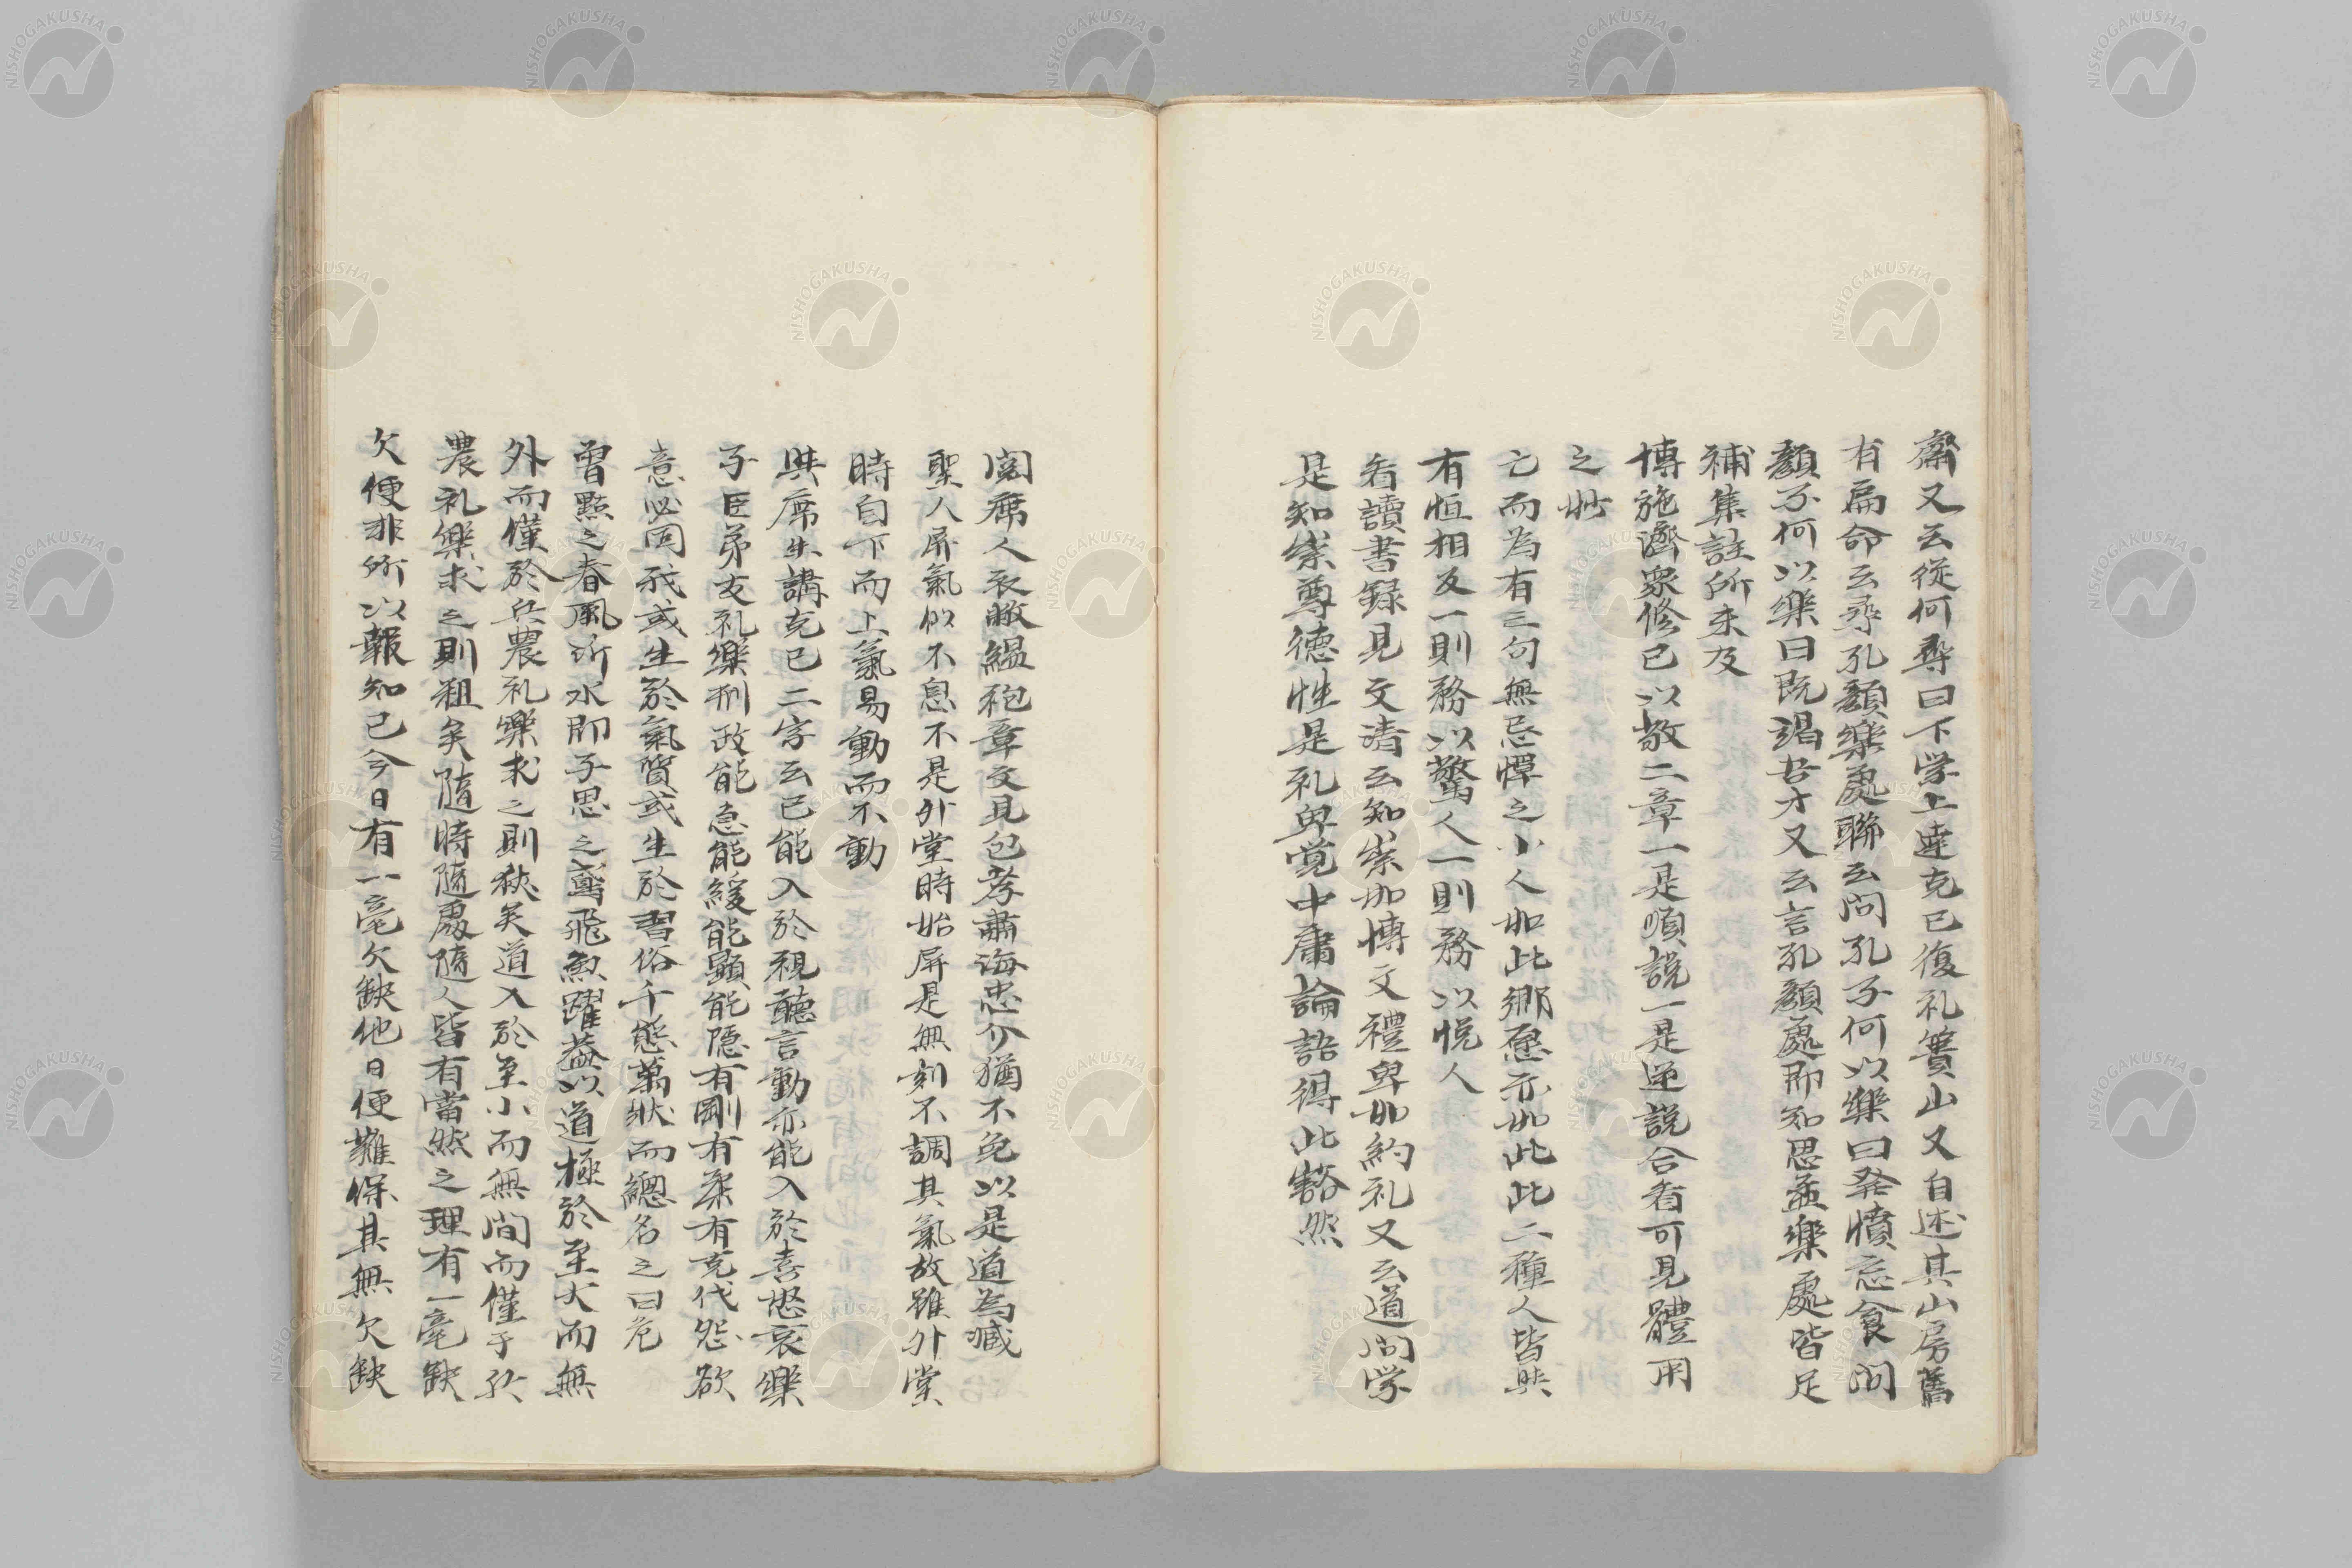 齋又云從何尋曰下学上達克己復礼簣山又自述其山房舊
有扁命云尋孔顏樂處聯云問孔子何以樂曰發憤忘食問
顏子何以樂曰既竭吾才又云言孔顏處即知思孟樂處皆足
補集註所未及
博施濟衆修己以敬二章一是順說一是逆說合看可見體用
之妙
亡而為有三句無忌憚之小人如此鄉愿亦如此此二種人皆與
有恒相反一則務以驚人一則務以悅人
看讀書錄見文清云知崇如博文禮卑如約礼又云道問学
是知崇尊德性是礼卑覚中庸論語得此豁然
閱席人衣敝縕袍章文見包孝肅海忠介猶不免以是道為臧
聖人屏氣似不息不是升堂時始屏是無刻不調其氣故雖升堂
時自下而上氣易動而不動
與席生講克己二字云己能入於視聽言動亦能入於喜怒哀樂
子臣弟友礼樂刑政能急能緩能顯能隱有剛有柔有克伐怨欲
意必固我或生於氣質或生於習俗千態萬狀而總名之曰克
曾點之春風沂水即子思之鳶飛魚躍蓋以道極於至大而無
外而僅於兵農礼樂求之則狹矣道入於至小而無間而僅于於
農礼樂求之則粗矣隨時隨處隨人皆有當然之理有一毫缺
欠便非所以報知己今日有一毫欠缺他日便難保其無欠缺